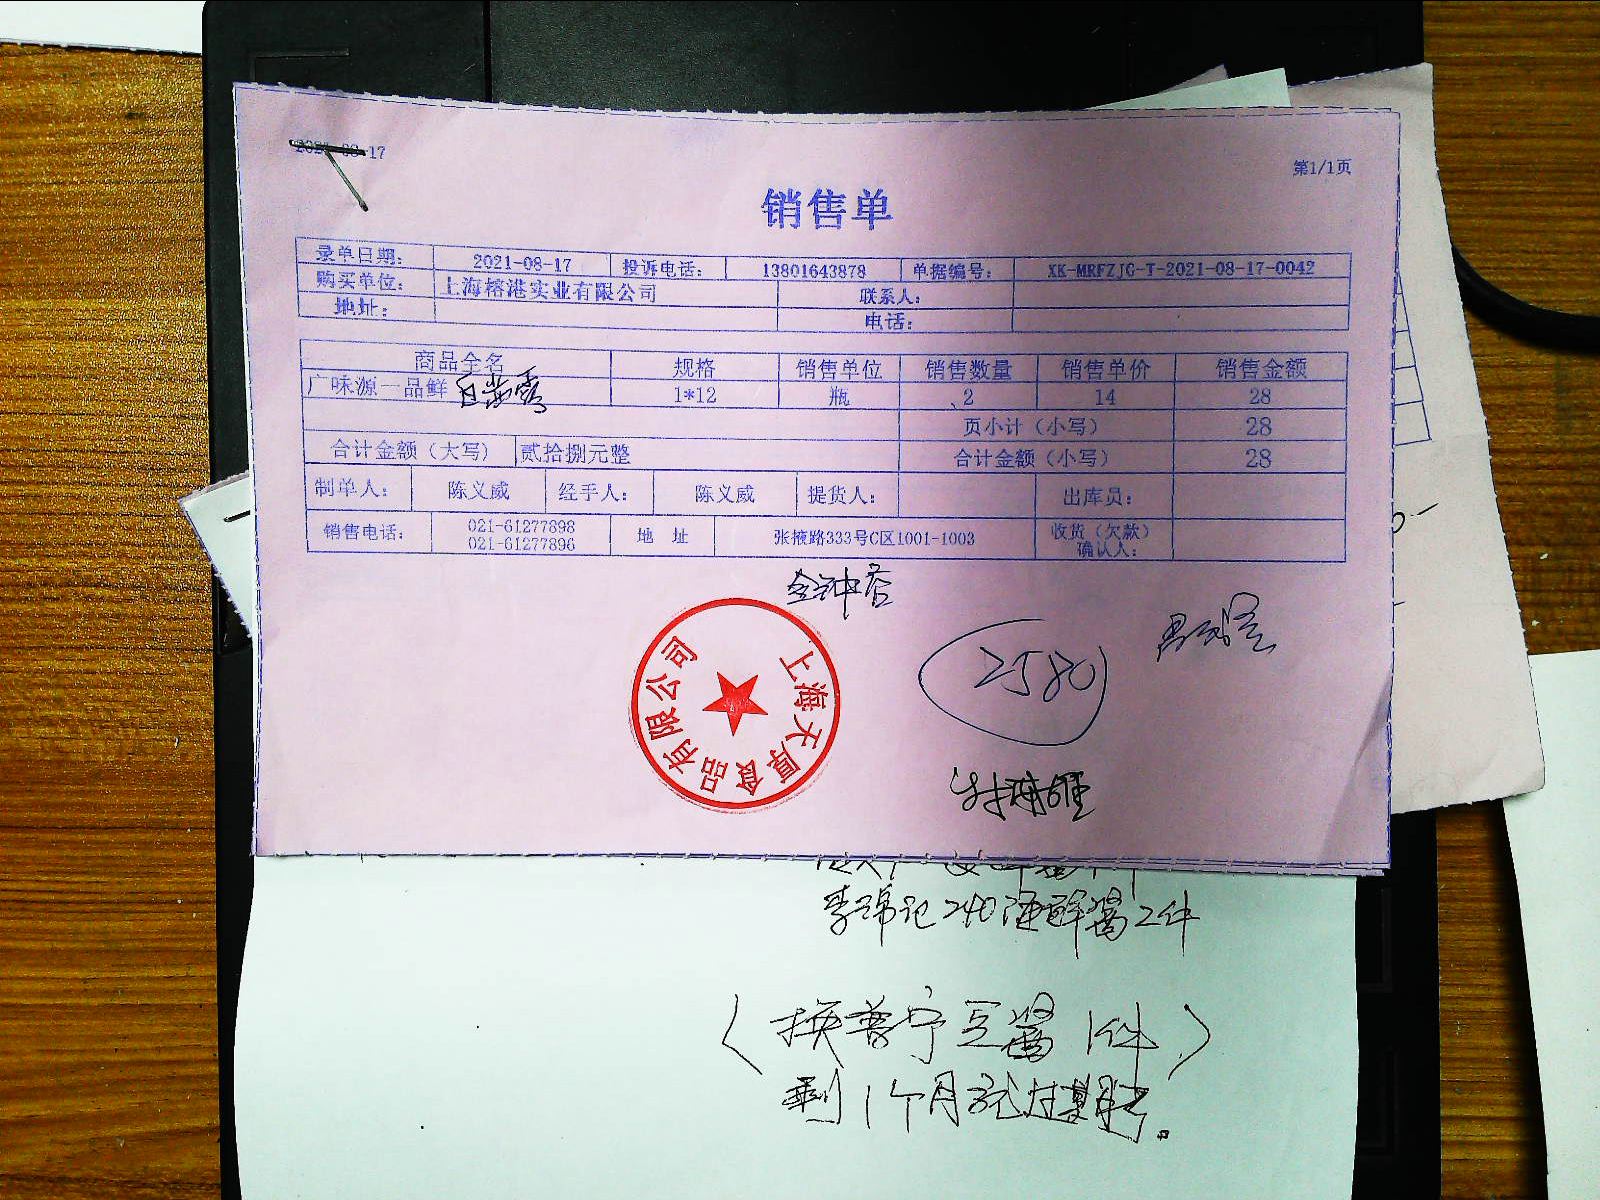 17
第1/1页
销售单
录单日期： 2021-08-17 投诉电话： 13801643878 单据编号： XK-MRFZJG-T-2021-08-17-0042
购买单位： 上海榕港实业有限公司 联系人：
地址： 电话：
商品全名 规格 销售单位 销售数量 销售单价 销售金额
广味源一品鲜 1*12 瓶 2 14 28
页小计（小写） 28
合计金额（大写） 贰拾捌元整 合计金额（小写） 28
制单人： 陈义威 经手人： 陈义威 提货人： 出库员：
销售电话： 021-61277898 021-61277896 地 址 张掖路333号C区1001-1003 收货（欠款）确认人：
上海天厚食品有限公司
2580
李锦记240海鲜酱2件
（换普宁豆酱1件）
剩1个月就过期了。